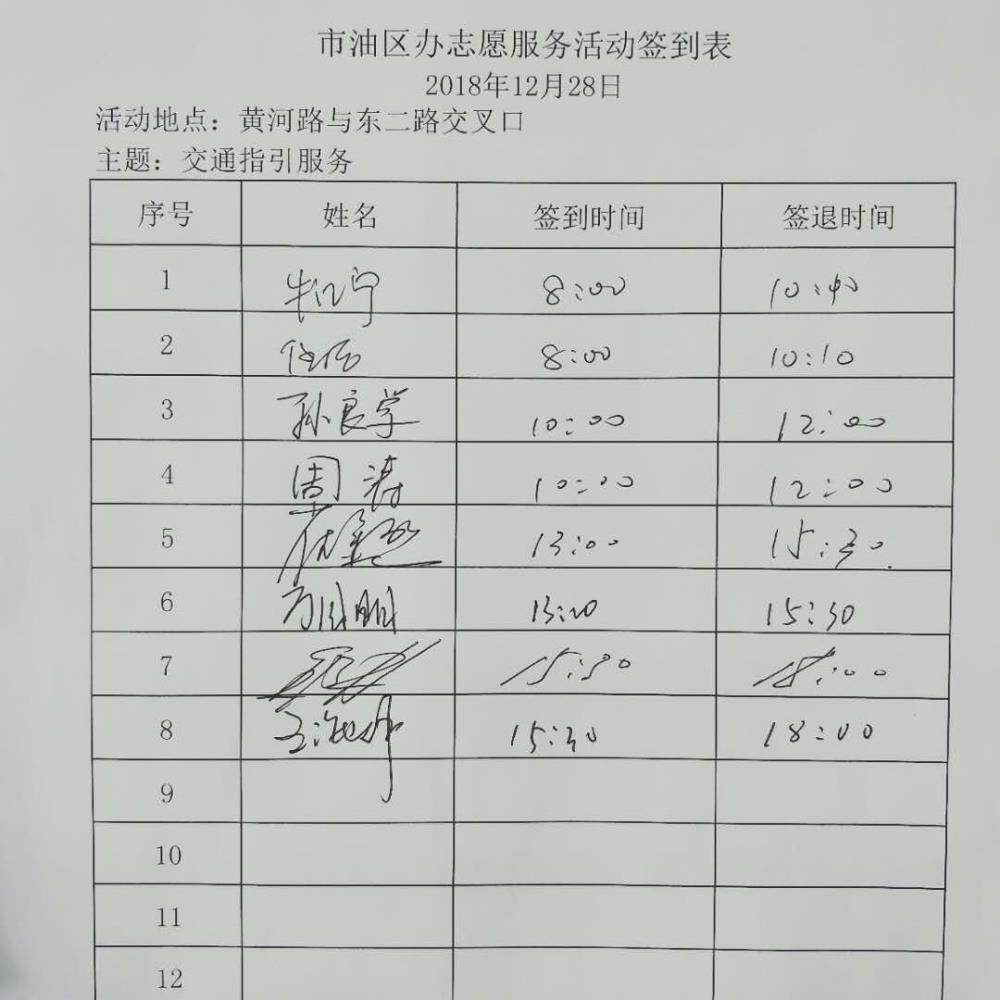 市油区办志愿服务活动签到表
2018年12月28日
活动地点：黄河路与东二路交叉口
主题：交通指引服务
序号 姓名 签到时间 签退时间
1 8:00 10:40
2 8:00 10:10
3 孙良学 10:00 12:00
4 周涛 10:00 12:00
5 13:00 15:30
6 13:00 15:30
7 15:30 18:00
8 15:30 18:00
9
10
11
12